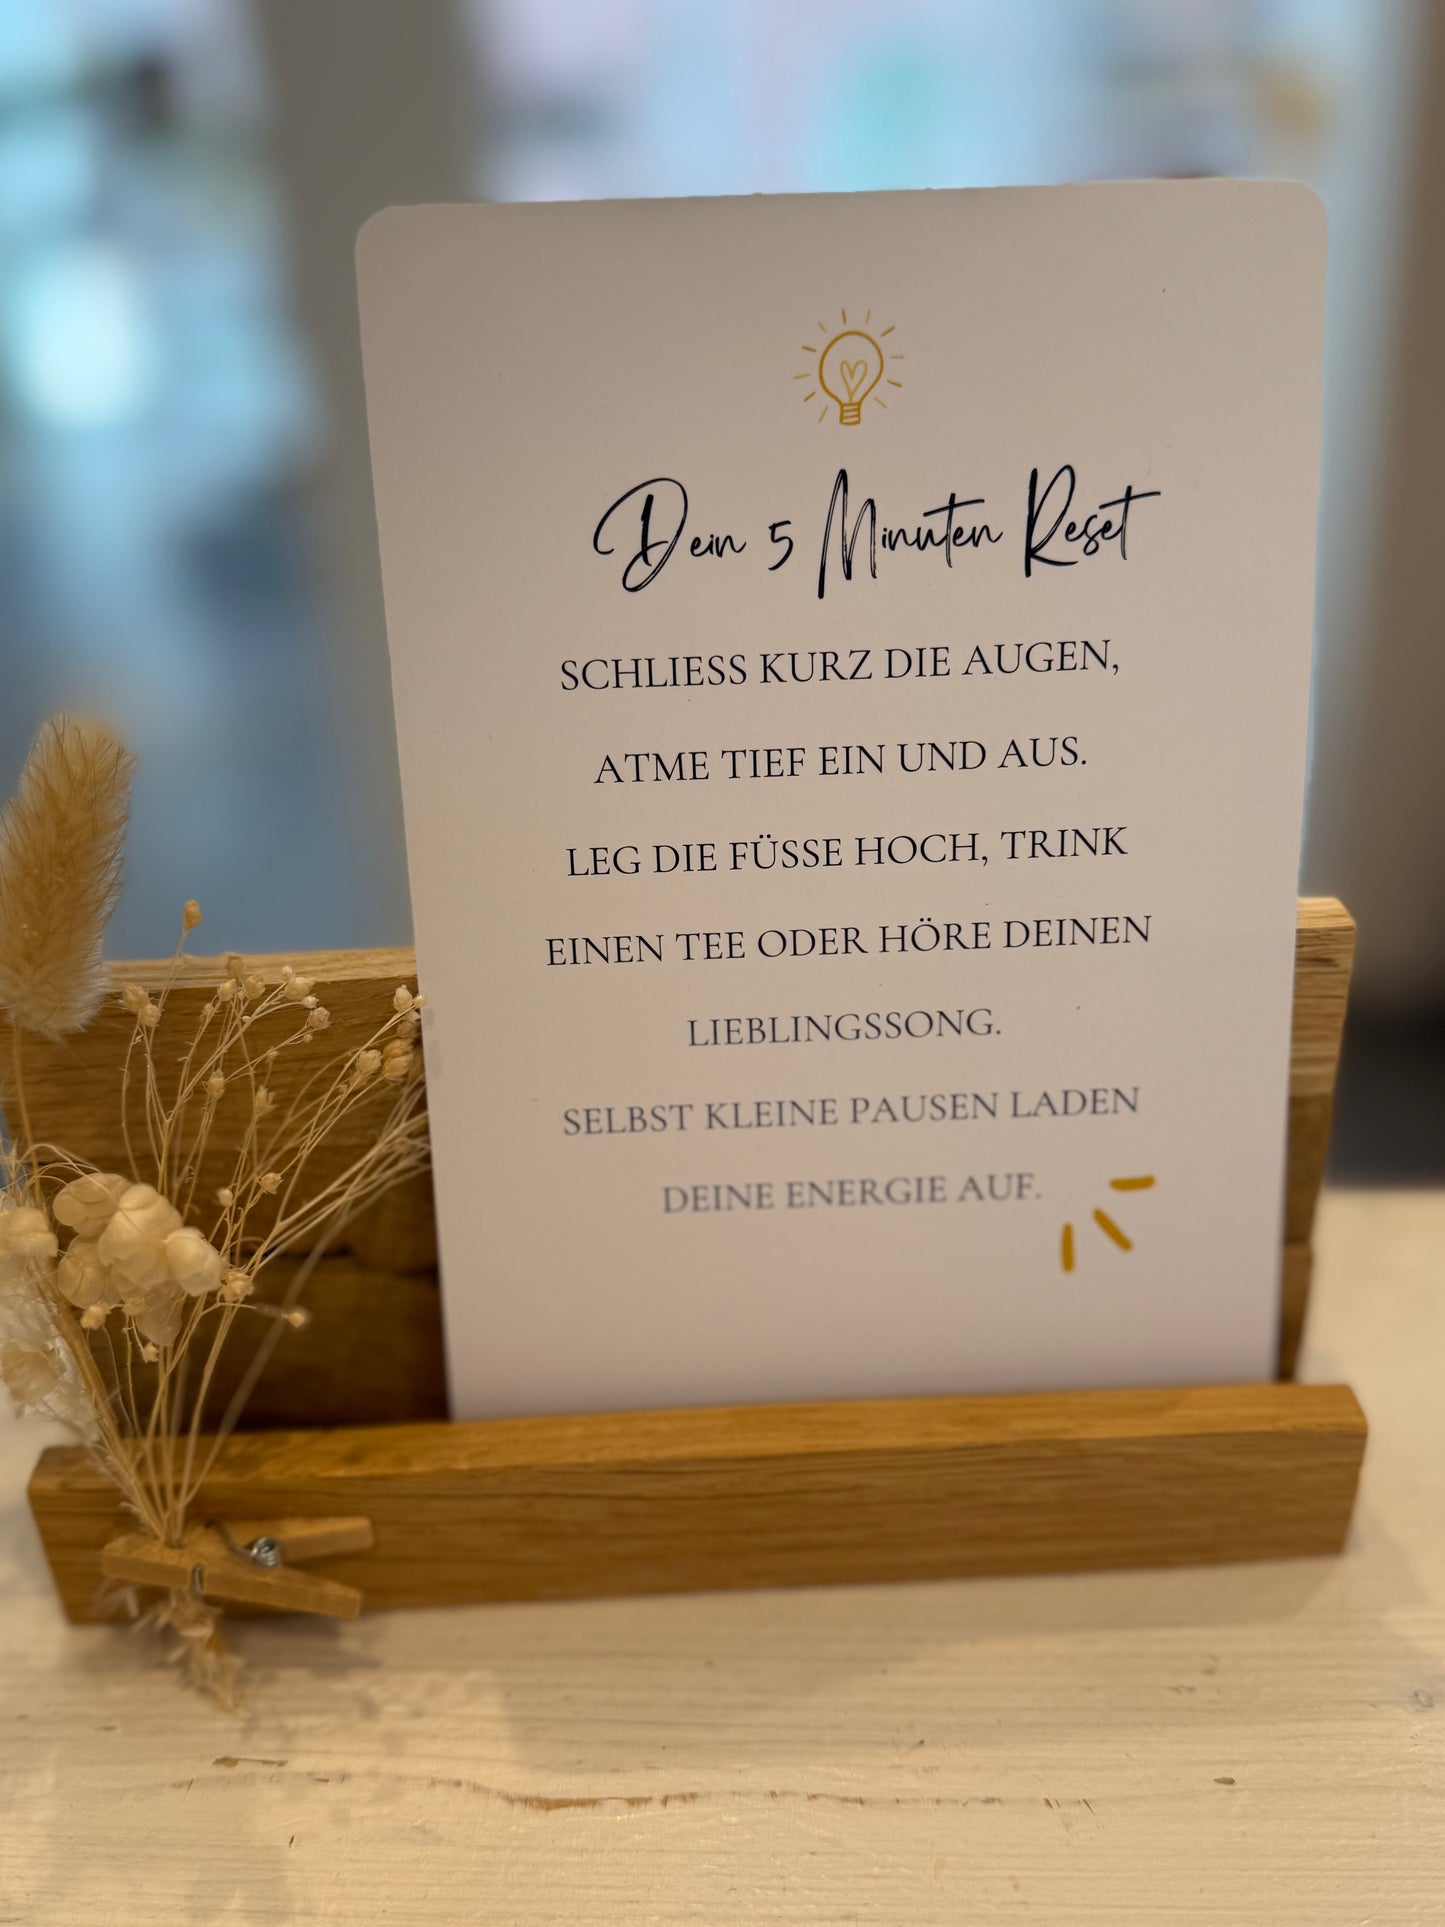 Dein 5 Minuten Reset
SCHLIESS KURZ DIE AUGEN,
ATME TIEF EIN UND AUS.
LEG DIE FÜSSE HOCH, TRINK
EINEN TEE ODER HÖRE DEINEN
LIEBLINGSSONG.
SELBST KLEINE PAUSEN LADEN
DEINE ENERGIE AUF.